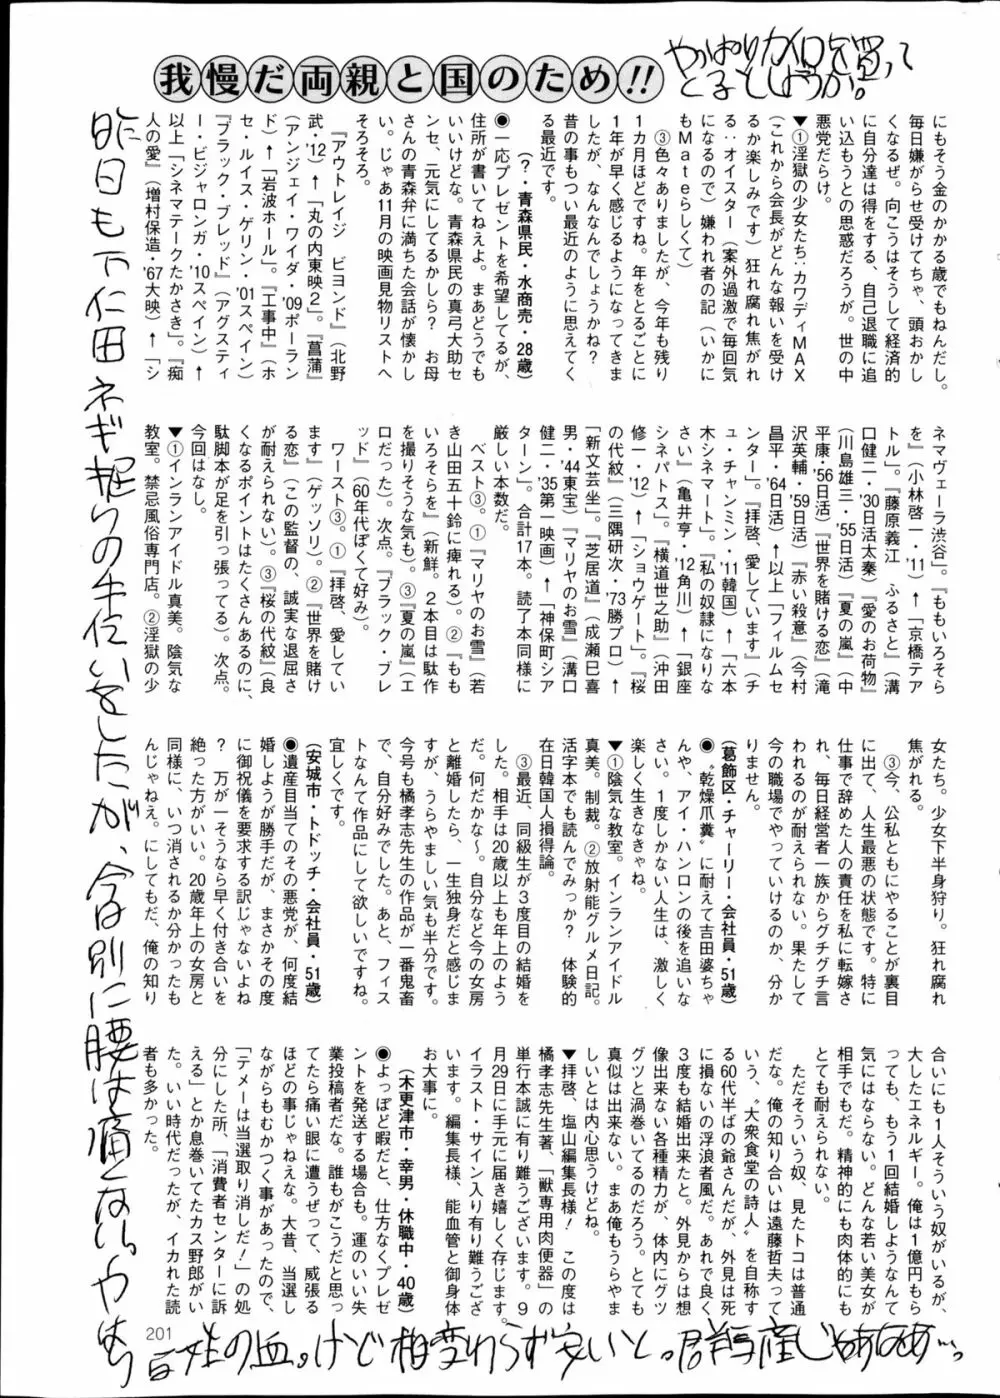 我慢だ両親と国のため!!
にもそう金のかかる歳でもねんだし。
毎日嫌がらせ受けてちゃ、頭おかし
くなるぜ。向こうはそうして経済的
に自分達は得をする、自己退職に追
い込もうとの思惑だろうが。世の中
悪党だらけ。
▼①淫獄の少女たち:カワディMAX
(これから会長がどんな報いを受け
るか楽しみです)狂れ腐れ焦がれ
る:オイスター(案外過激で毎回気
になるので)嫌われ者の記(いかに
もMateらしくて)
③色々ありましたが、今年も残り
1カ月ほどですね。年をとるごとに
1年が早く感じるようになってきま
したが、なんなんでしょうかね?
昔の事もつい最近のように思えてく
る最近です。
(?・青森県民・水商売・28歳)
◉一応プレゼントを希望してるが、
住所が書いてねえよ。まあどうでも
いいけどな。青森県民の真弓大助セ
ンセ、元気にしてるかしら? お母
さんの青森弁に満ちた会話が懐かし
い。じゃあ11月の映画見物リストへ
そろそろ。
『アウトレイジ ビヨンド』(北野
武・'12)↑「丸の内東映2」。『菖蒲』
(アンジェイ・ワイダ・'09ポーラン
ド)↑「岩波ホール」。『工事中』(ホ
セ・ルイス・ゲリン・'01スペイン)
『ブラック・ブレッド』(アグスティ
ー・ビジャロンガ・'10スペイン)↑
以上「シネマテークたかさき」。『痴
人の愛』(増村保造・'67大映)↑「シ
ネマヴェーラ渋谷」。『ももいろそら
を』(小林啓一・'11)↑「京橋テア
トル」。『藤原義江 ふるさと』(溝
口健二・'30日活太秦)『愛のお荷物』
(川島雄三・'55日活)『夏の嵐』(中
平康・'56日活)『世界を賭ける恋』(滝
沢英輔・'59日活)『赤い殺意』(今村
昌平・'64日活)↑以上「フィルムセ
ンター」。『拝啓、愛しています』(チ
ュ・チャンミン・'11韓国)↑「六本
木シネマート」。『私の奴隷になりな
さい』(亀井亨・'12角川)↑「銀座
シネパトス」。『横道世之助』(沖田
修一・'12)↑「ショウゲート」。『桜
の代紋』(三隅研次・'73勝プロ)↑
「新文芸坐」。『芝居道』(成瀬巳喜
男・'44東宝)『マリヤのお雪』(溝口
健二・'35第一映画)↑「神保町シア
ター」。合計17本。読了本同様に
厳しい本数だ。
ベスト③。①『マリヤのお雪』(若
き山田五十鈴に痺れる)。②『もも
いろそらを』(新鮮。2本目は駄作
を撮りそうな気も)。③『夏の嵐』(エ
ロだった)。次点。『ブラック・ブレ
ッド』(60年代ぽくて好み)。
ワースト③。①『拝啓、愛してい
ます』(ゲッソリ)。②『世界を賭け
る恋』(この監督の、誠実な退屈さ
が耐えられない)。③『桜の代紋』(良
くなるポイントはたくさんあるのに、
駄脚本が足を引っ張ってる)。次点。
今回はなし。
▼①インランアイドル真美。陰気な
教室。禁忌風俗専門店。②淫獄の少
女たち。少女下半身狩り。狂れ腐れ
焦がれる。
③今、公私ともにやることが裏目
に出て、人生最悪の状態です。特に
仕事で辞めた人の責任を私に転嫁さ
れ、毎日経営者一族からグチグチ言
われるのが耐えられない。果たして
今の職場でやっていけるのか、分か
りません。
(葛飾区・チャーリー・会社員・51歳)
◉〝乾燥爪糞〟に耐えて吉田婆ちゃ
んや、アイ・ハンロンの後を追いな
さい。1度しかない人生は、激しく
楽しく生きなきゃね。
▼①陰気な教室。インランアイドル
真美。制裁。②放射能グルメ日記。
活字本でも読んでみっか? 体験的
在日韓国人損得論。
③最近、同級生が3度目の結婚を
した。相手は20歳以上も年上のよう
だ。何だかな~。自分など今の女房
と離婚したら、一生独身だと感じま
すが、うらやましい気も半分です。
今号も橘孝志先生の作品が一番鬼畜
で、自分好みでした。あと、フィス
トなんて作品にして欲しいですね。
宜しくです。
(安城市・トドッチ・会社員・51歳)
◉遺産目当てのその悪党が、何度結
婚しようが勝手だが、まさかその度
に御祝儀を要求する訳じゃないよね
? 万が一そうなら早く付き合いを
絶った方がいい。20歳年上の女房と
同様に、いつ消されるか分かったも
んじゃねえ。にしてもだ、俺の知り
合いにも1人そういう奴がいるが、
大したエネルギー。俺は1億円もら
っても、もう1回結婚しようなんて
気にはならない。どんな若い美女が
相手でもだ。精神的にも肉体的にも
とても耐えられない。
ただそういう奴、見たトコは普通
だな。俺の知り合いは遠藤哲夫って
いう、〝大衆食堂の詩人〟を自称す
る60代半ばの爺さんだが、外見は死
に損ないの浮浪者風だ。あれで良く
3度も結婚出来たと。外見からは想
像出来ない各種精力が、体内にグツ
グツと渦巻いてるのだろう。とても
真似は出来ない。まあ俺もうらやま
しいとは内心思うけどね。
▼拝啓、塩山編集長様! この度は
橘孝志先生著、「獣専用肉便器」の
単行本誠に有り難うございます。9
月29日に手元に届き嬉しく存じます。
イラスト・サイン入り有り難うござ
います。編集長様、能血管と御身体
お大事に。
(木更津市・幸男・休職中・40歳)
◉よっぽど暇だと、仕方なくプレゼ
ントを発送する場合も。運のいい失
業投稿者だな。誰もがこうだと思っ
てたら痛い眼に遭うぜって、威張る
ほどの事じゃねえな。大昔、当選し
ながらもむかつく事があったので、
「テメーは当選取り消しだ!」の処
分にした所、「消費者センターに訴
える」とか息巻いてたカス野郎がい
た。いい時代だったが、イカれた読
者も多かった。
昨日も下仁田ネギ掘りの手伝いをしたが、今は別に腰は痛くない。やはり
百姓の血。けど相変わらず安いと。群馬産じゃあなあ…。
201